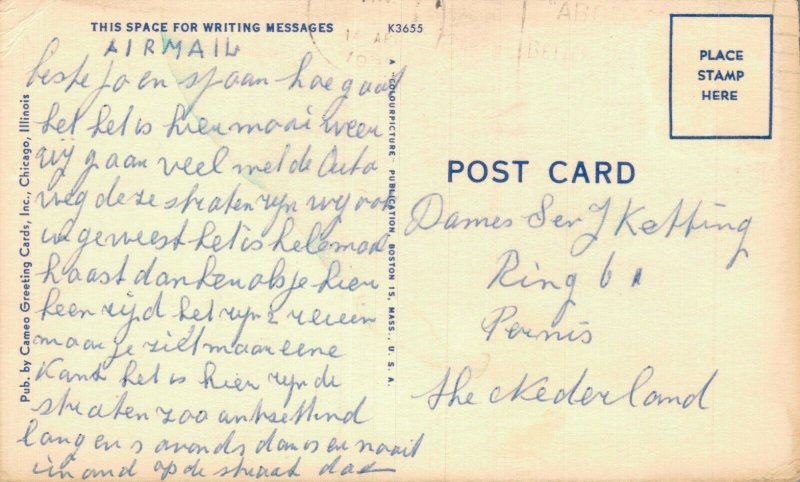 THIS SPACE FOR WRITING MESSAGES
K3655
AIRMAIL
beste Jo en sjaan hoe gaat
het het is hier mooi weer
wij gaan veel met de Auto
weg deze straten zijn wij ook
in geweest het is helemaal
haast danken als je hier
heen rijd het zijn 2
maar je ziet maar eene
Kant het is hier zijn de
straten zoo ontzettend
lang en s avonds dan is er nooit
iemand op de straat das
Pub. by Cameo Greeting Cards, Inc., Chicago, Illinois
A "COLOURPICTURE" PUBLICATION, BOSTON 15, MASS., U.S.A.
PLACE
STAMP
HERE
POST CARD
Dames S en J Ketting
Ring 61
Pernis
the Nederland